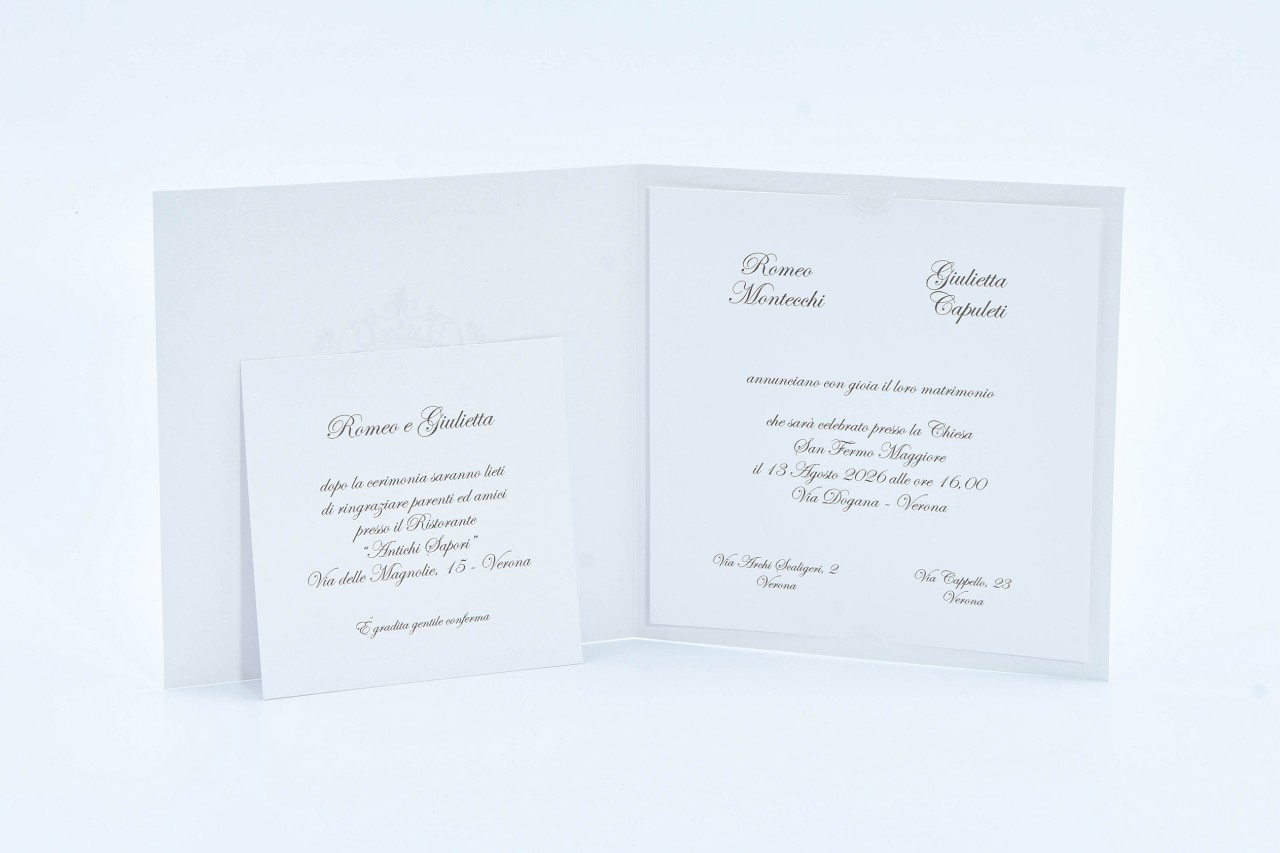 Romeo e Giulietta
dopo la cerimonia saranno lieti
di ringraziare parenti ed amici
presso il Ristorante
“Antichi Sapori”
Via delle Magnolie, 15 - Verona
É gradita gentile conferma
Romeo
Montecchi
Giulietta
Capuleti
annunciano con gioia il loro matrimonio
che sarà celebrato presso la Chiesa
San Fermo Maggiore
il 13 Agosto 2026 alle ore 16,00
Via Dogana - Verona
Via Archi Scaligeri, 2
Verona
Via Cappello, 23
Verona